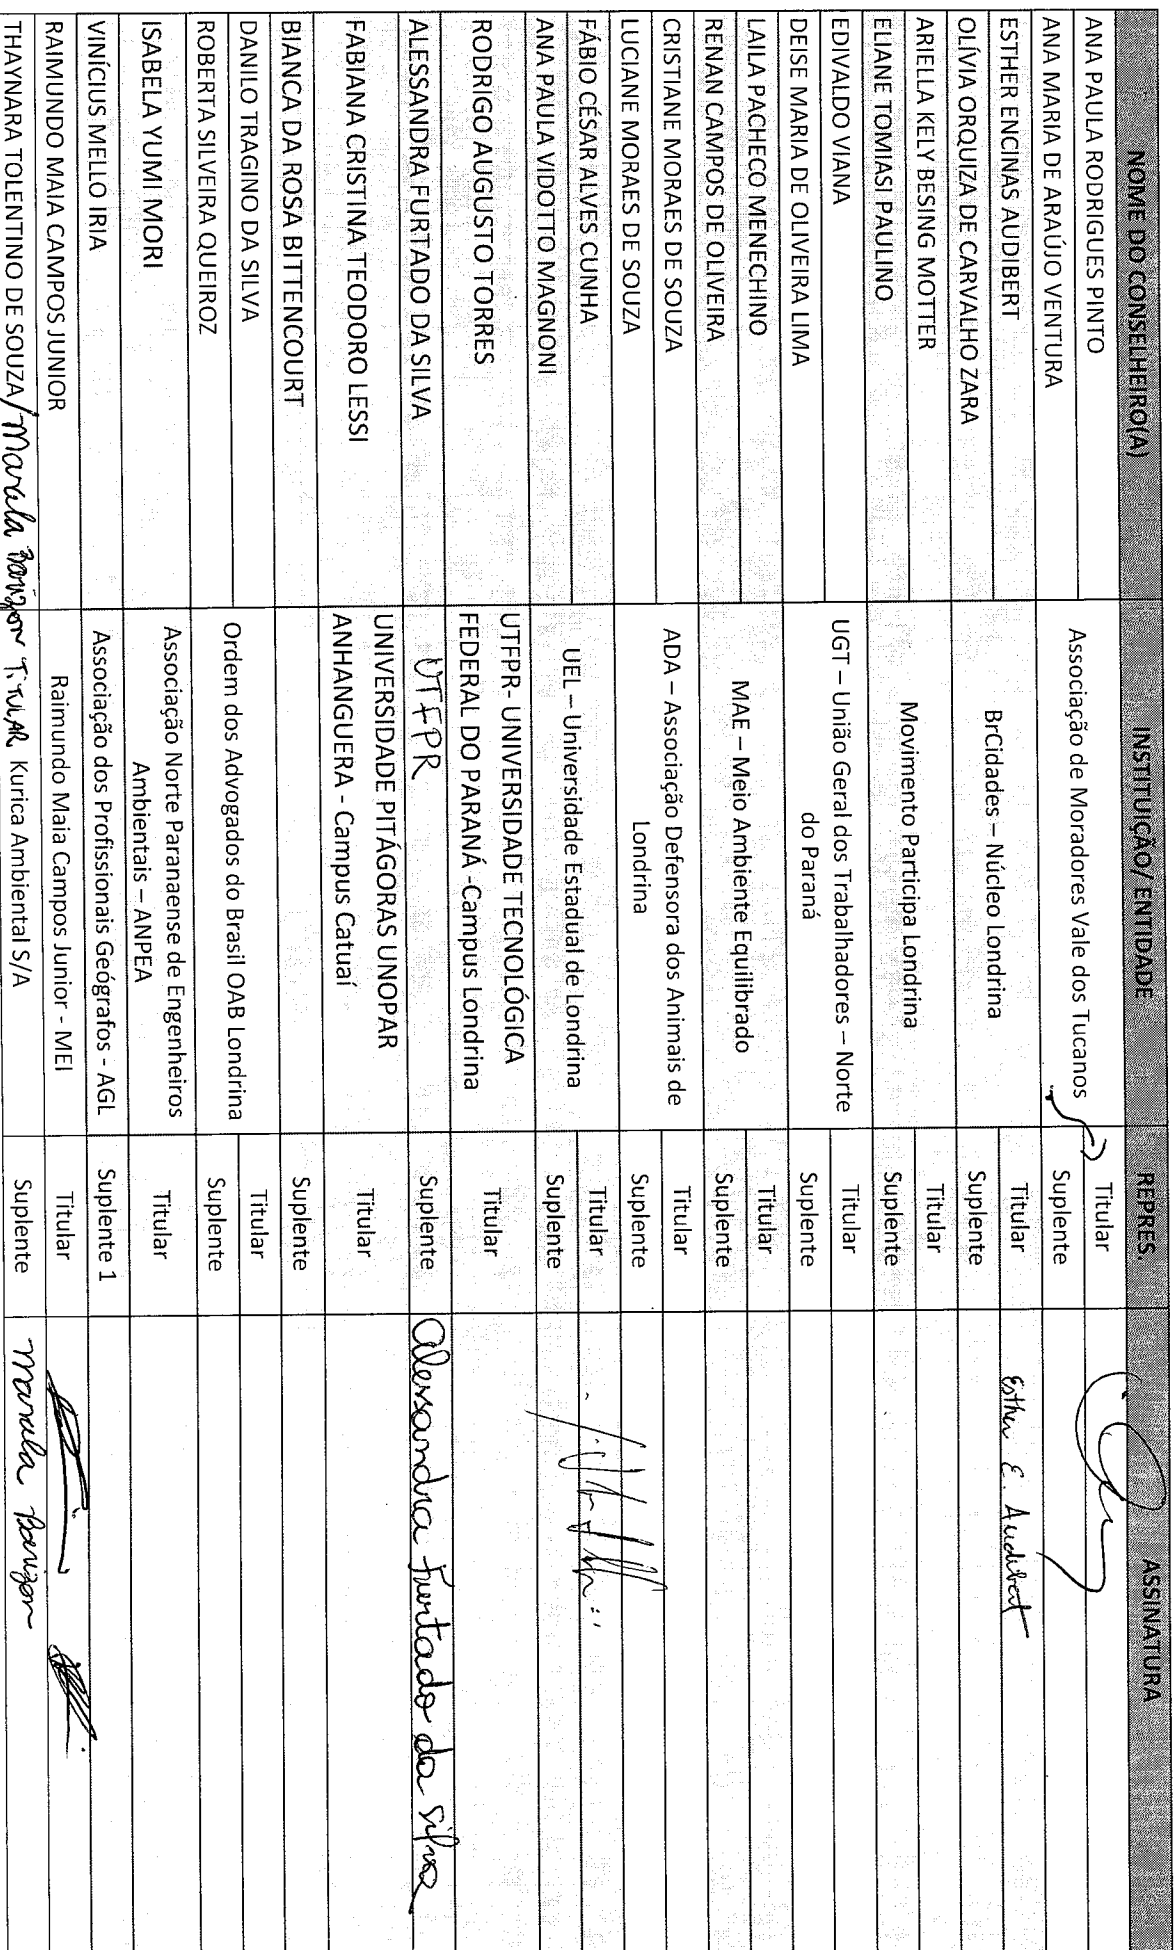 NOME DO CONSELHEIRO(A) INSTITUIÇÃO/ ENTIDADE REPRES. ASSINATURA
ANA PAULA RODRIGUES PINTO Associação de Moradores Vale dos Tucanos Titular
ANA MARIA DE ARAÚJO VENTURA Suplente
ESTHER ENCINAS AUDIBERT BrCidades – Núcleo Londrina Titular Esther E. Audibert
OLÍVIA ORQUIZA DE CARVALHO ZARA Suplente
ARIELLA KELY BESING MOTTER Movimento Participa Londrina Titular
ELIANE TOMIASI PAULINO Suplente
EDIVALDO VIANA UGT – União Geral dos Trabalhadores – Norte Titular
DEISE MARIA DE OLIVEIRA LIMA do Paraná Suplente
LAILA PACHECO MENECHINO MAE – Meio Ambiente Equilibrado Titular
RENAN CAMPOS DE OLIVEIRA Suplente
CRISTIANE MORAES DE SOUZA ADA – Associação Defensora dos Animais de Titular
LUCIANE MORAES DE SOUZA Londrina Suplente
FÁBIO CÉSAR ALVES CUNHA UEL – Universidade Estadual de Londrina Titular
ANA PAULA VIDOTTO MAGNONI Suplente
RODRIGO AUGUSTO TORRES UTFPR- UNIVERSIDADE TECNOLÓGICA Titular
FEDERAL DO PARANÁ -Campus Londrina
ALESSANDRA FURTADO DA SILVA UTFPR Suplente Alessandra Furtado da Silva
FABIANA CRISTINA TEODORO LESSI UNIVERSIDADE PITÁGORAS UNOPAR Titular
ANHANGUERA - Campus Catuaí
BIANCA DA ROSA BITTENCOURT Suplente
DANILO TRAGINO DA SILVA Ordem dos Advogados do Brasil OAB Londrina Titular
ROBERTA SILVEIRA QUEIROZ Suplente
ISABELA YUMI MORI Associação Norte Paranaense de Engenheiros Titular
Ambientais – ANPEA
VINÍCIUS MELLO IRIA Associação dos Profissionais Geógrafos - AGL Suplente 1
RAIMUNDO MAIA CAMPOS JUNIOR Raimundo Maia Campos Junior - MEI Titular
THAYNARA TOLENTINO DE SOUZA/ Marula Barizon TITULAR Kurica Ambiental S/A Suplente Marula Barizon